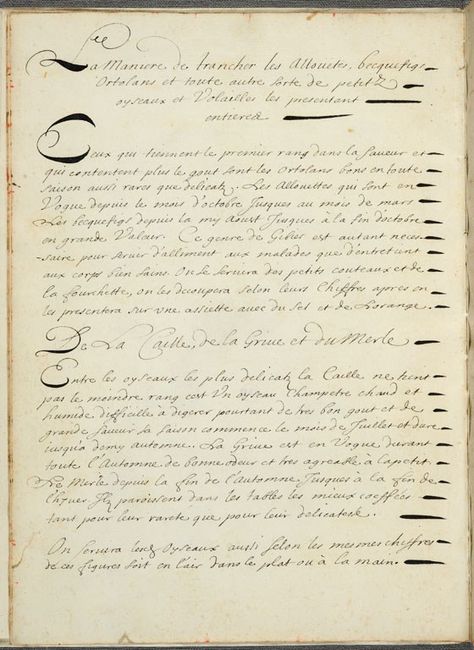 La Maniere de trancher les Allouetes, becquefigs
Ortolans et toute autre sorte de petitz
oyseaux et Volailles les presentant
entieres
Ceux qui tiennent le premier rang dans la saveur et
qui contentent plus le gout sont les ortolans bons en toute
saison aussi rares que delicatz. Les Allouettes qui sont en
Vogue depuis le mois d'octobre Jusques au mois de mars
Les becquefigs depuis la my Aoust Jusques à la fin d'octobre
en grande Valeur. Ce genre de Gibier est autant neces-
saire pour servir d'alliment aux malades que d'entretient
aux corps bien sains. On se servira des petits couteaux et de
la fourchette, on les decoupera selon leurs chiffres apres on
les presentera sur une assiette avec du sel et de l'orange.
De La Caille, de la Grive et du Merle
Entre les oyseaux les plus delicatz la Caille ne tient
pas le moindre rang c'est Un oyseau champetre chaud et
humide difficille à digerer pourtant de tres bon gout et de
grande saveur sa saison commence le mois de Juillet et dure
jusqu'a demy automne. La Grive est en Vogue durant
toute l'Automne de bonne odeur et tres agreable à l'apetit.
Le Merle depuis la fin de l'automne Jusques à la fin de
L'hyver. Ilz paroissent dans les tables les mieux coeffées
tant pour leur rareté que pour leur delicatesse.
On servira les oyseaux aussi selon les mesmes chiffres
de ces figures soit en l'air dans le plat ou à la main.